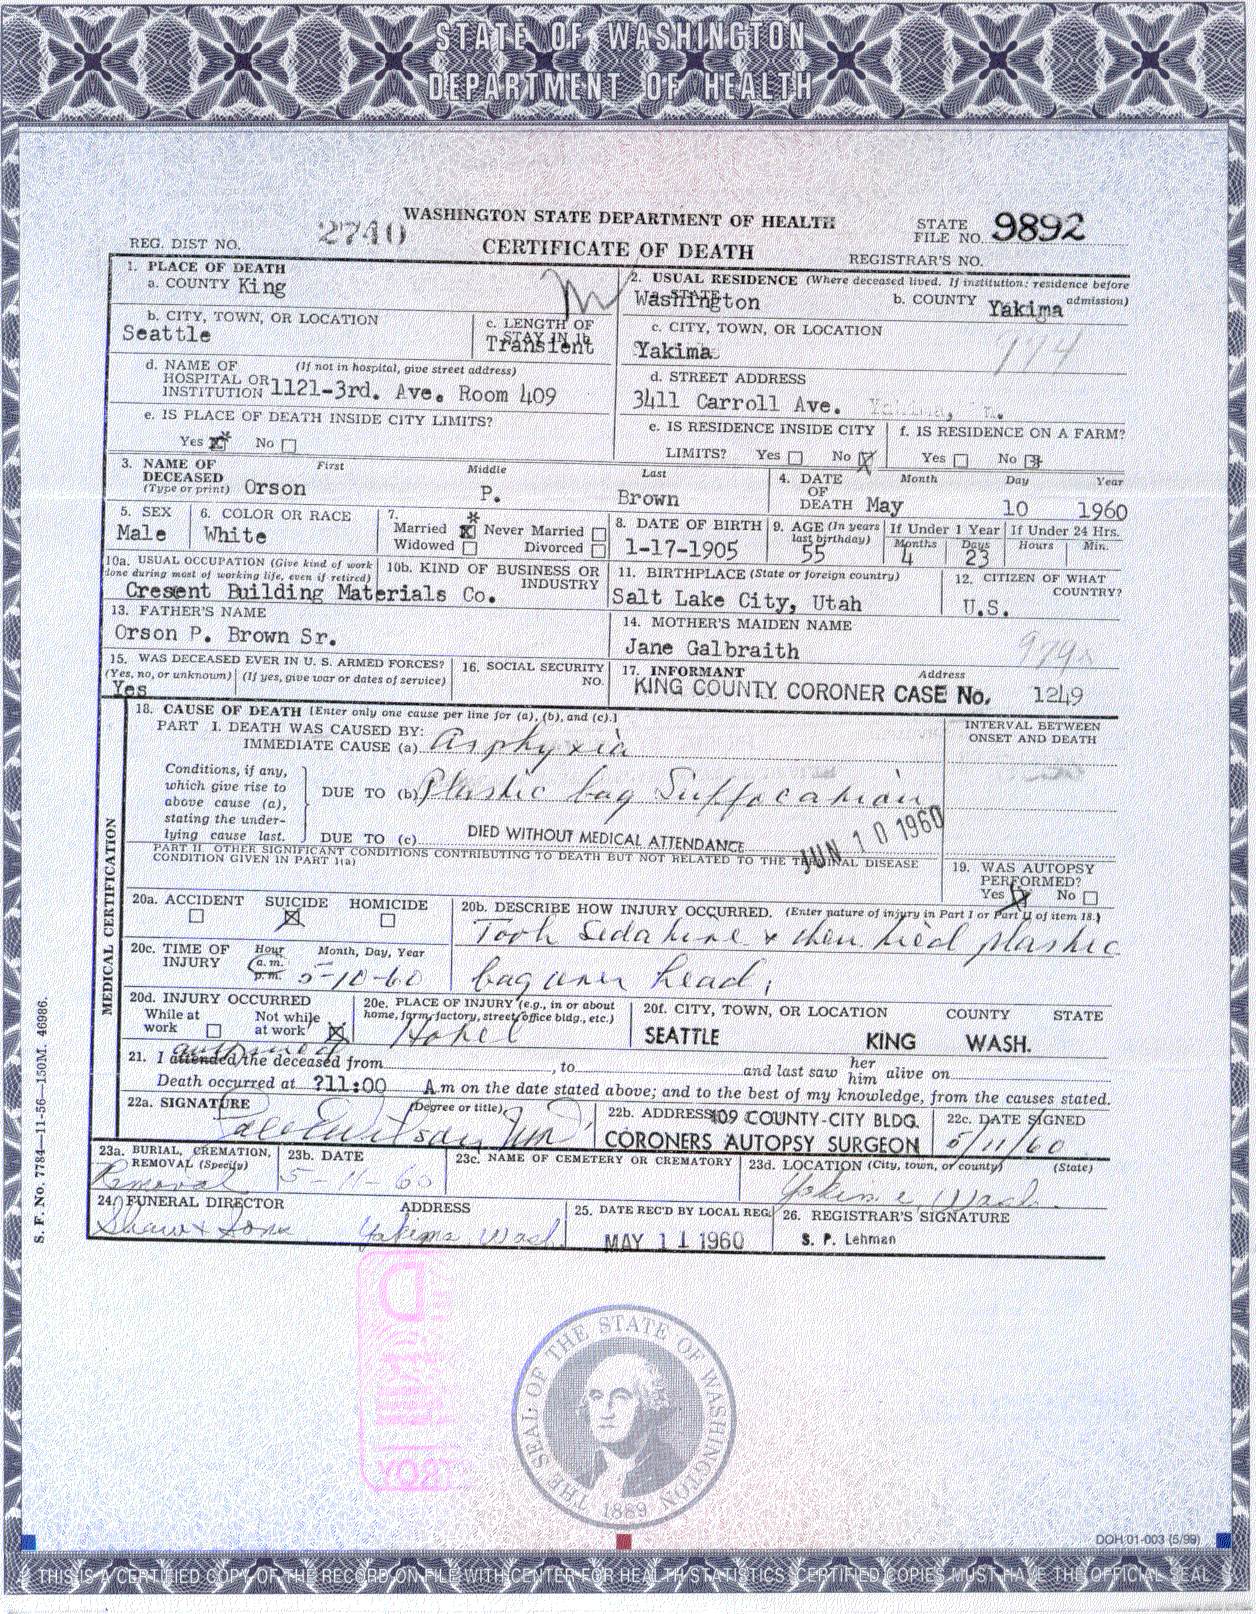 STATE OF WASHINGTON
DEPARTMENT OF HEALTH
WASHINGTON STATE DEPARTMENT OF HEALTH
REG. DIST NO. 2740 CERTIFICATE OF DEATH STATE FILE NO. 9892
REGISTRAR'S NO.
1. PLACE OF DEATH
a. COUNTY King
2. USUAL RESIDENCE (Where deceased lived. If institution: residence before admission)
a. STATE Washington b. COUNTY Yakima
b. CITY, TOWN, OR LOCATION Seattle
c. LENGTH OF STAY IN 1b Transient
c. CITY, TOWN, OR LOCATION Yakima
174
d. NAME OF (If not in hospital, give street address)
HOSPITAL OR INSTITUTION 1121-3rd. Ave. Room 409
d. STREET ADDRESS
3411 Carroll Ave.
e. IS PLACE OF DEATH INSIDE CITY LIMITS?
Yes No
e. IS RESIDENCE INSIDE CITY LIMITS? Yes No
f. IS RESIDENCE ON A FARM? Yes No
3. NAME OF DECEASED (Type or print) First Middle Last
Orson P. Brown
4. DATE OF DEATH Month Day Year
May 10 1960
5. SEX Male
6. COLOR OR RACE White
7. Married Never Married
Widowed Divorced
8. DATE OF BIRTH 1-17-1905
9. AGE (In years last birthday) 55
If Under 1 Year Months 4 Days 23
If Under 24 Hrs. Hours Min.
10a. USUAL OCCUPATION (Give kind of work done during most of working life, even if retired)
10b. KIND OF BUSINESS OR INDUSTRY
Cresent Building Materials Co.
11. BIRTHPLACE (State or foreign country)
Salt Lake City, Utah
12. CITIZEN OF WHAT COUNTRY?
U.S.
13. FATHER'S NAME
Orson P. Brown Sr.
14. MOTHER'S MAIDEN NAME
Jane Galbraith
15. WAS DECEASED EVER IN U. S. ARMED FORCES?
(Yes, no, or unknown) (If yes, give war or dates of service)
Yes
16. SOCIAL SECURITY NO.
17. INFORMANT Address
KING COUNTY CORONER CASE No. 1249
MEDICAL CERTIFICATION
18. CAUSE OF DEATH [Enter only one cause per line for (a), (b), and (c).]
INTERVAL BETWEEN ONSET AND DEATH
PART I. DEATH WAS CAUSED BY:
IMMEDIATE CAUSE (a) Asphyxia
Conditions, if any, which give rise to above cause (a), stating the underlying cause last.
DUE TO (b) Plastic bag Suffocation
DUE TO (c) DIED WITHOUT MEDICAL ATTENDANCE
JUN 10 1960
PART II OTHER SIGNIFICANT CONDITIONS CONTRIBUTING TO DEATH BUT NOT RELATED TO THE TERMINAL DISEASE
CONDITION GIVEN IN PART 1(a)
19. WAS AUTOPSY PERFORMED?
Yes No
20a. ACCIDENT SUICIDE HOMICIDE
20b. DESCRIBE HOW INJURY OCCURRED. (Enter nature of injury in Part I or Part II of item 18.)
Took Sedative & then tied plastic
bag over head.
20c. TIME OF INJURY Hour a.m. p.m. Month, Day, Year
5-10-60
20d. INJURY OCCURRED
While at work Not while at work
20e. PLACE OF INJURY (e.g., in or about home, farm, factory, street, office bldg., etc.)
Hotel
20f. CITY, TOWN, OR LOCATION COUNTY STATE
SEATTLE KING WASH.
21. I attended the deceased from , to and last saw her him alive on
Death occurred at ?11:00 A.m on the date stated above; and to the best of my knowledge, from the causes stated.
22a. SIGNATURE (Degree or title)
22b. ADDRESS 109 COUNTY-CITY BLDG.
CORONERS AUTOPSY SURGEON
22c. DATE SIGNED
5/11/60
23a. BURIAL, CREMATION, REMOVAL (Specify)
Removal
23b. DATE
5-11-60
23c. NAME OF CEMETERY OR CREMATORY
23d. LOCATION (City, town, or county) (State)
Yakima, Wash.
24. FUNERAL DIRECTOR ADDRESS
Shaw & Sons Yakima, Wash.
25. DATE REC'D BY LOCAL REG.
MAY 11 1960
26. REGISTRAR'S SIGNATURE
S. P. Lehman
S. F. No. 7784—11-56—150M. 46986.
THE SEAL OF THE STATE OF WASHINGTON
1889
DOH 01-003 (5/99)
THIS IS A CERTIFIED COPY OF THE RECORD ON FILE WITH CENTER FOR HEALTH STATISTICS. CERTIFIED COPIES MUST HAVE THE OFFICIAL SEAL.